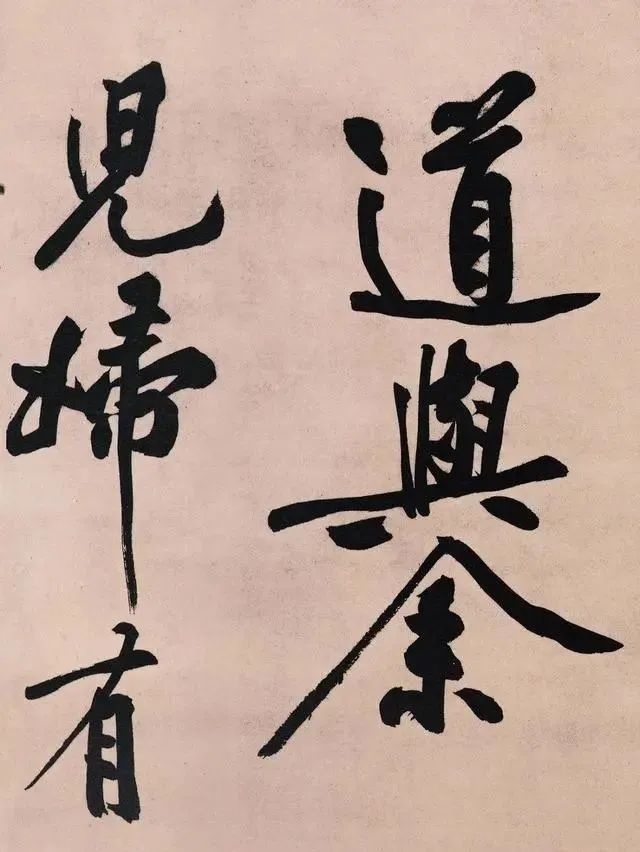 道與余
児婦有